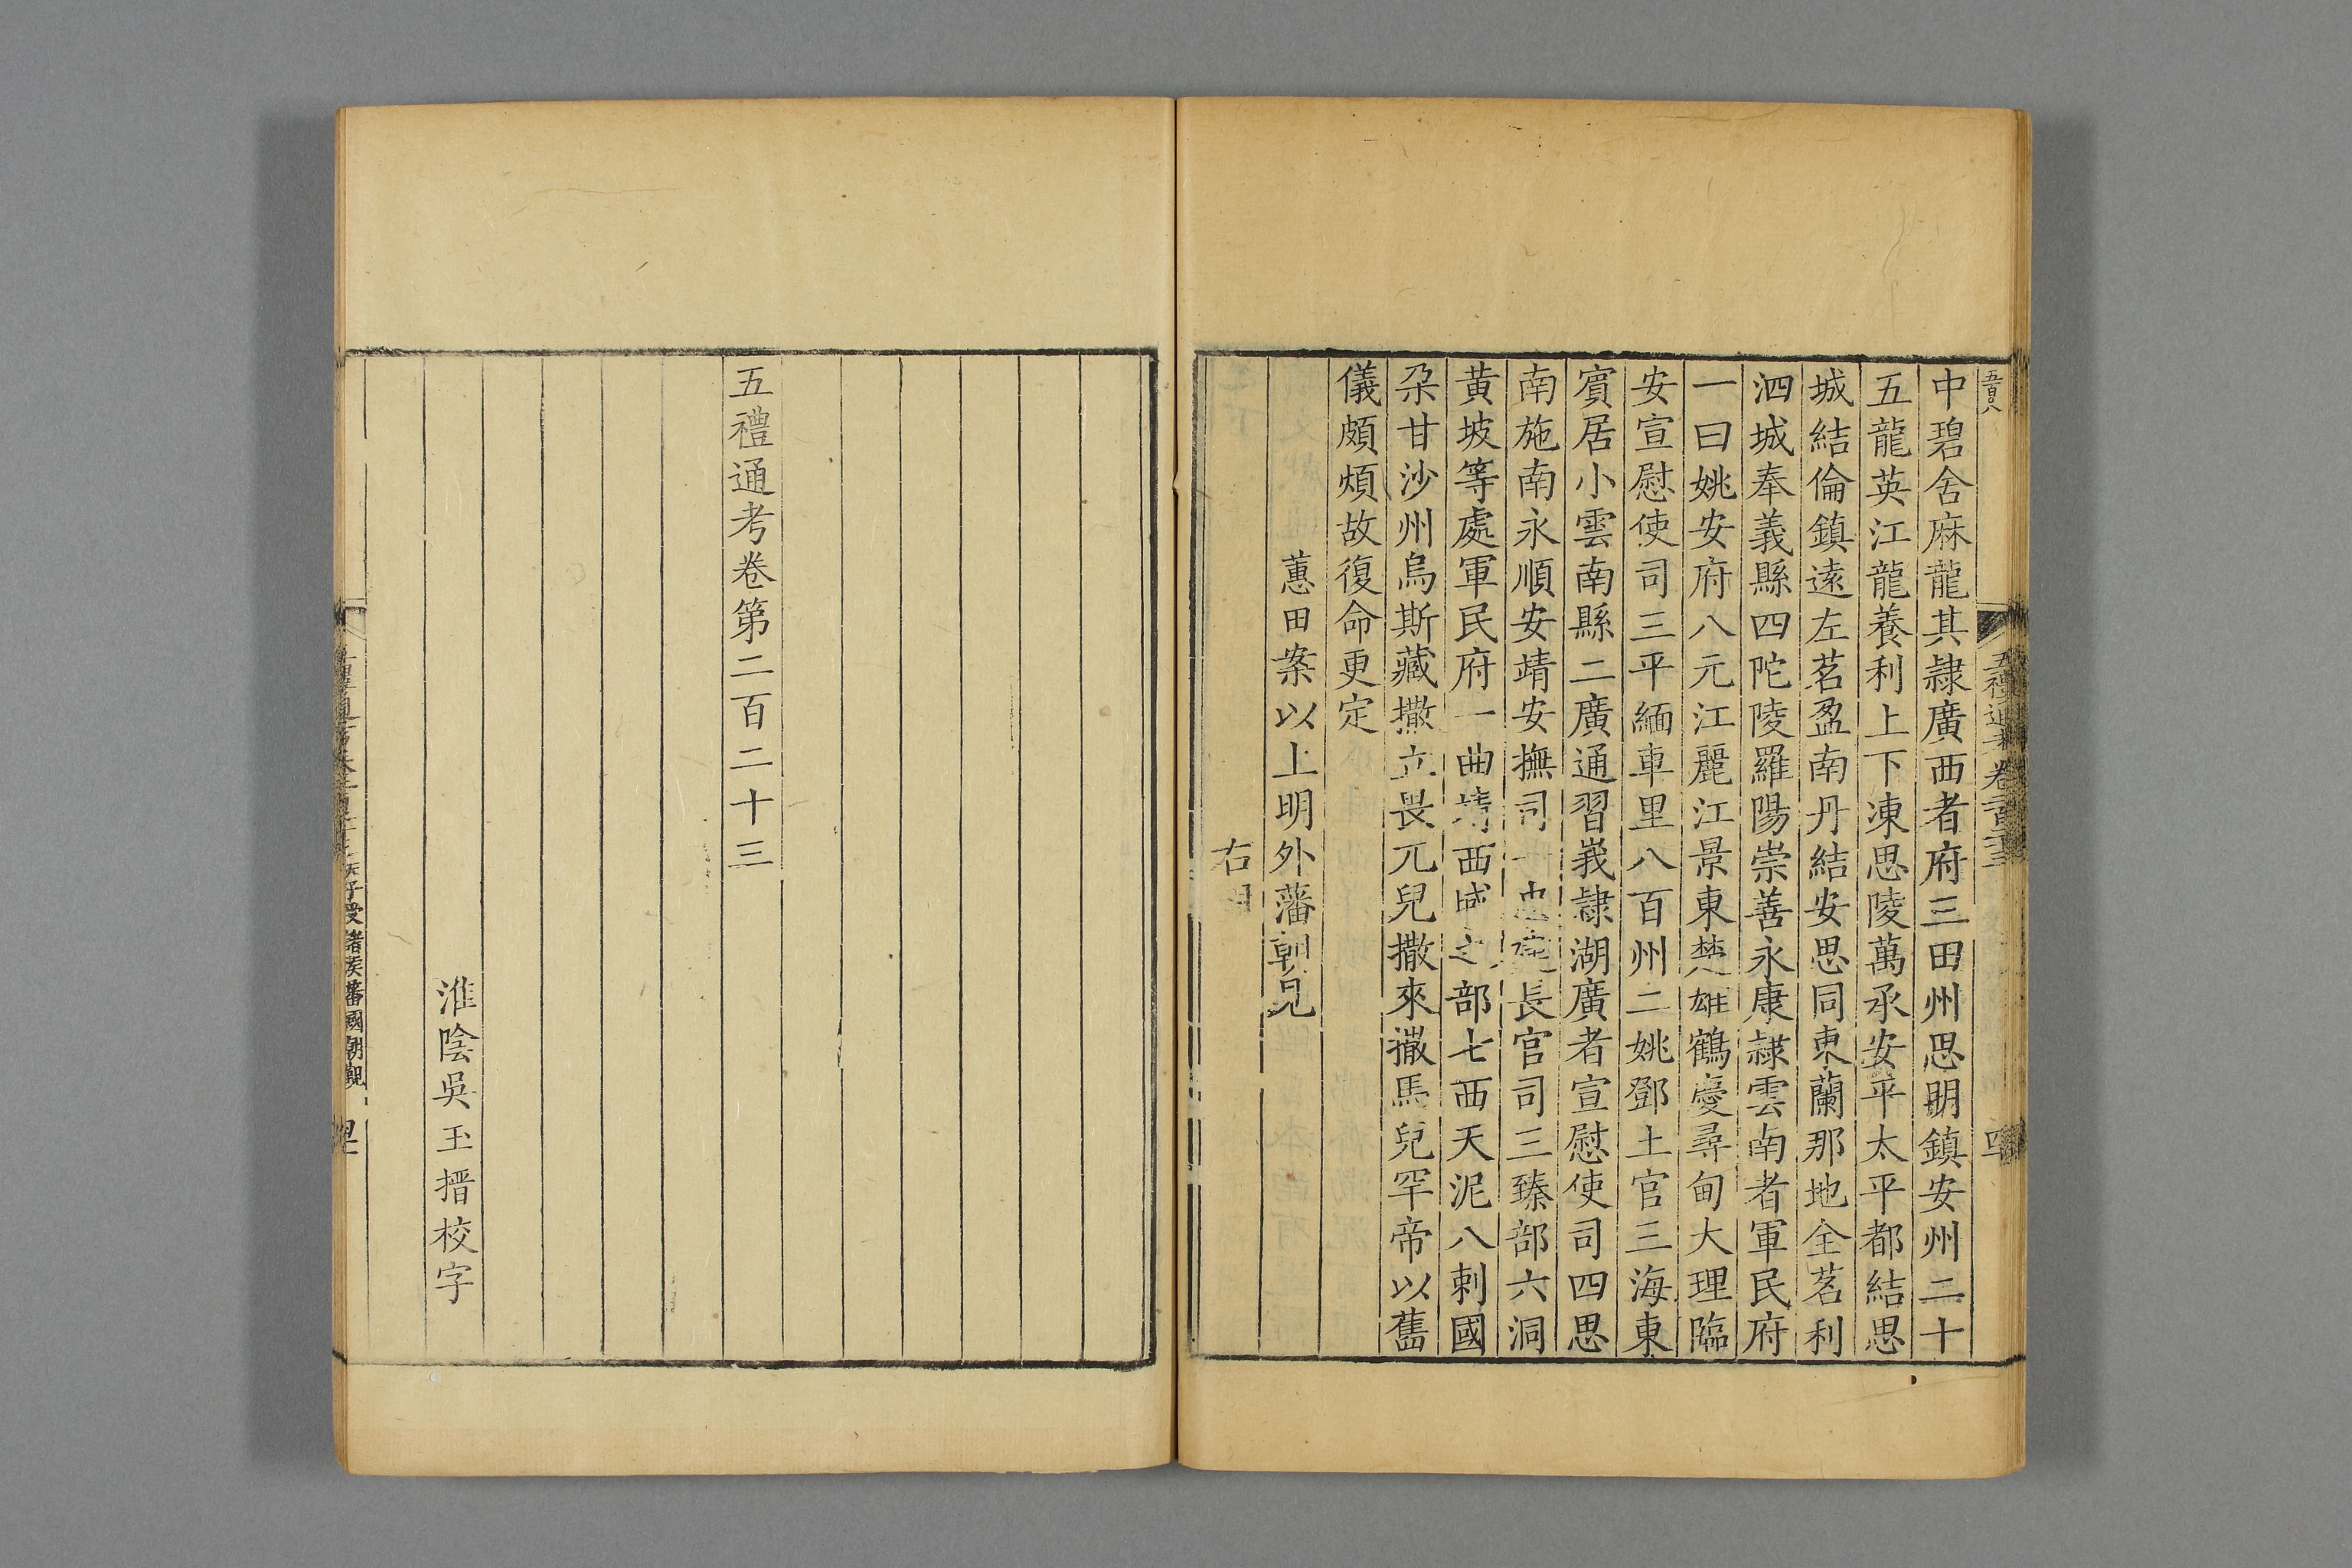 五百八
五禮通考卷二百二十三
中碧舍麻龍其隷廣西者府三田州思明鎮安州二十
五龍英江龍養利上下凍思陵萬承安平太平都結思
城結倫鎮遠左茗盈南丹結安思同東蘭那地全茗利
泗城奉義縣四陀陵羅陽崇善永康隷雲南者軍民府
一曰姚安府八元江麗江景東楚雄鶴慶尋甸大理臨
安宣慰使司三平緬車里八百州二姚鄧土官三海東
賓居小雲南縣二廣通習峩隷湖廣者宣慰使司四思
南施南永順安靖安撫司一忠建長官司三臻部六洞
黄坡等處軍民府一曲靖西域之部七西天泥八剌國
朵甘沙州烏斯藏撒立畏兀兒撒來撒馬兒罕帝以舊
儀頗煩故復命更定
蕙田案以上明外藩朝見
右明
五禮通考卷第二百二十三
淮陰吳玉搢校字
諸侯藩國朝覲